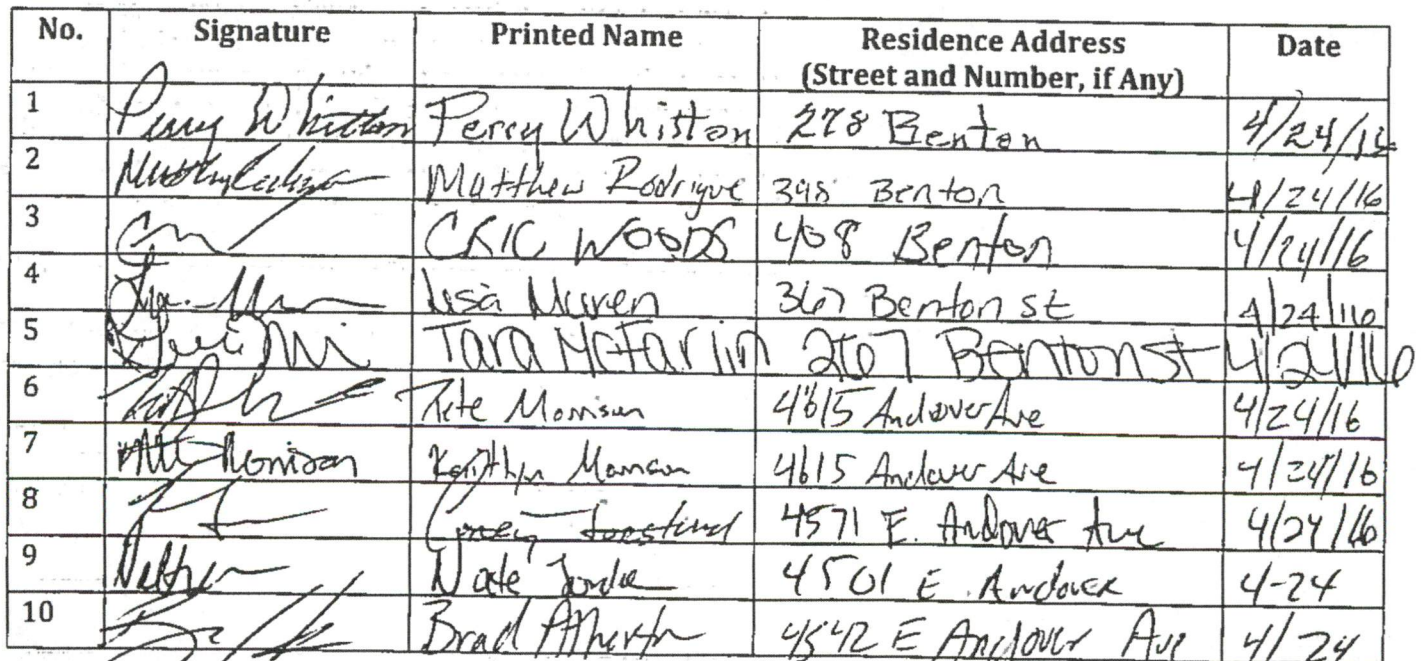 No. Signature Printed Name Residence Address (Street and Number, if Any) Date
1 Perry Whitton Perry Whitton 278 Benton 4/24/16
2 Matthew Rodrigue 398 Benton 4/24/16
3 WOODS 408 Benton 4/24/16
4 Lisa 367 Benton st 4/24/16
5 Tara McFarlin 267 Benton st 4/24/16
6 Pete Morrison 4615 Andover Ave 4/24/16
7 Morrison Morrison 4615 Andover Ave 4/24/16
8 4571 E. Andover Ave 4/24/16
9 Nate 4501 E. Andover 4-24
10 Brad 4542 E Andover Ave 4/24